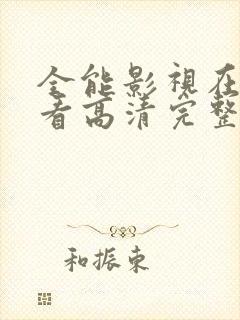 全能影視在
看高清完整
和振东